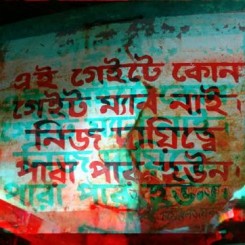 এই গেইটে কোন
গেইট ম্যান নাই
নিজ দায়িত্বে
পারা পার হউন।